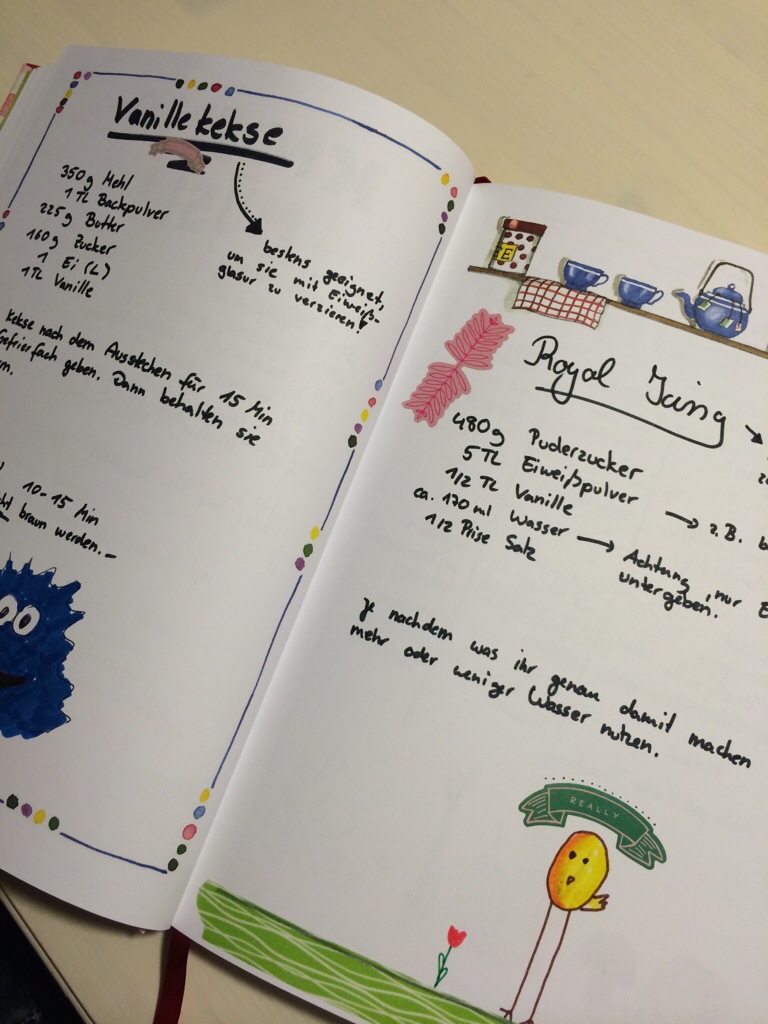 Vanillekekse
350g Mehl
1 TL Backpulver
225g Butter
160g Zucker
1 Ei (L)
1TL Vanille
bestens geeignet,
um sie mit Eiweiß-
glasur zu verzieren!
Kekse nach dem Ausstechen für 15 Min
Gefrierfach geben. Dann behalten sie
10-15 Min
braun werden.
E
Royal Icing
480g Puderzucker
5 TL Eiweißpulver
1/2 TL Vanille
ca. 170 ml Wasser
1/2 Prise Salz
z.B.
Achtung, nur
untergeben.
Je nachdem was ihr genau damit machen
mehr oder weniger Wasser nutzen.
REALLY